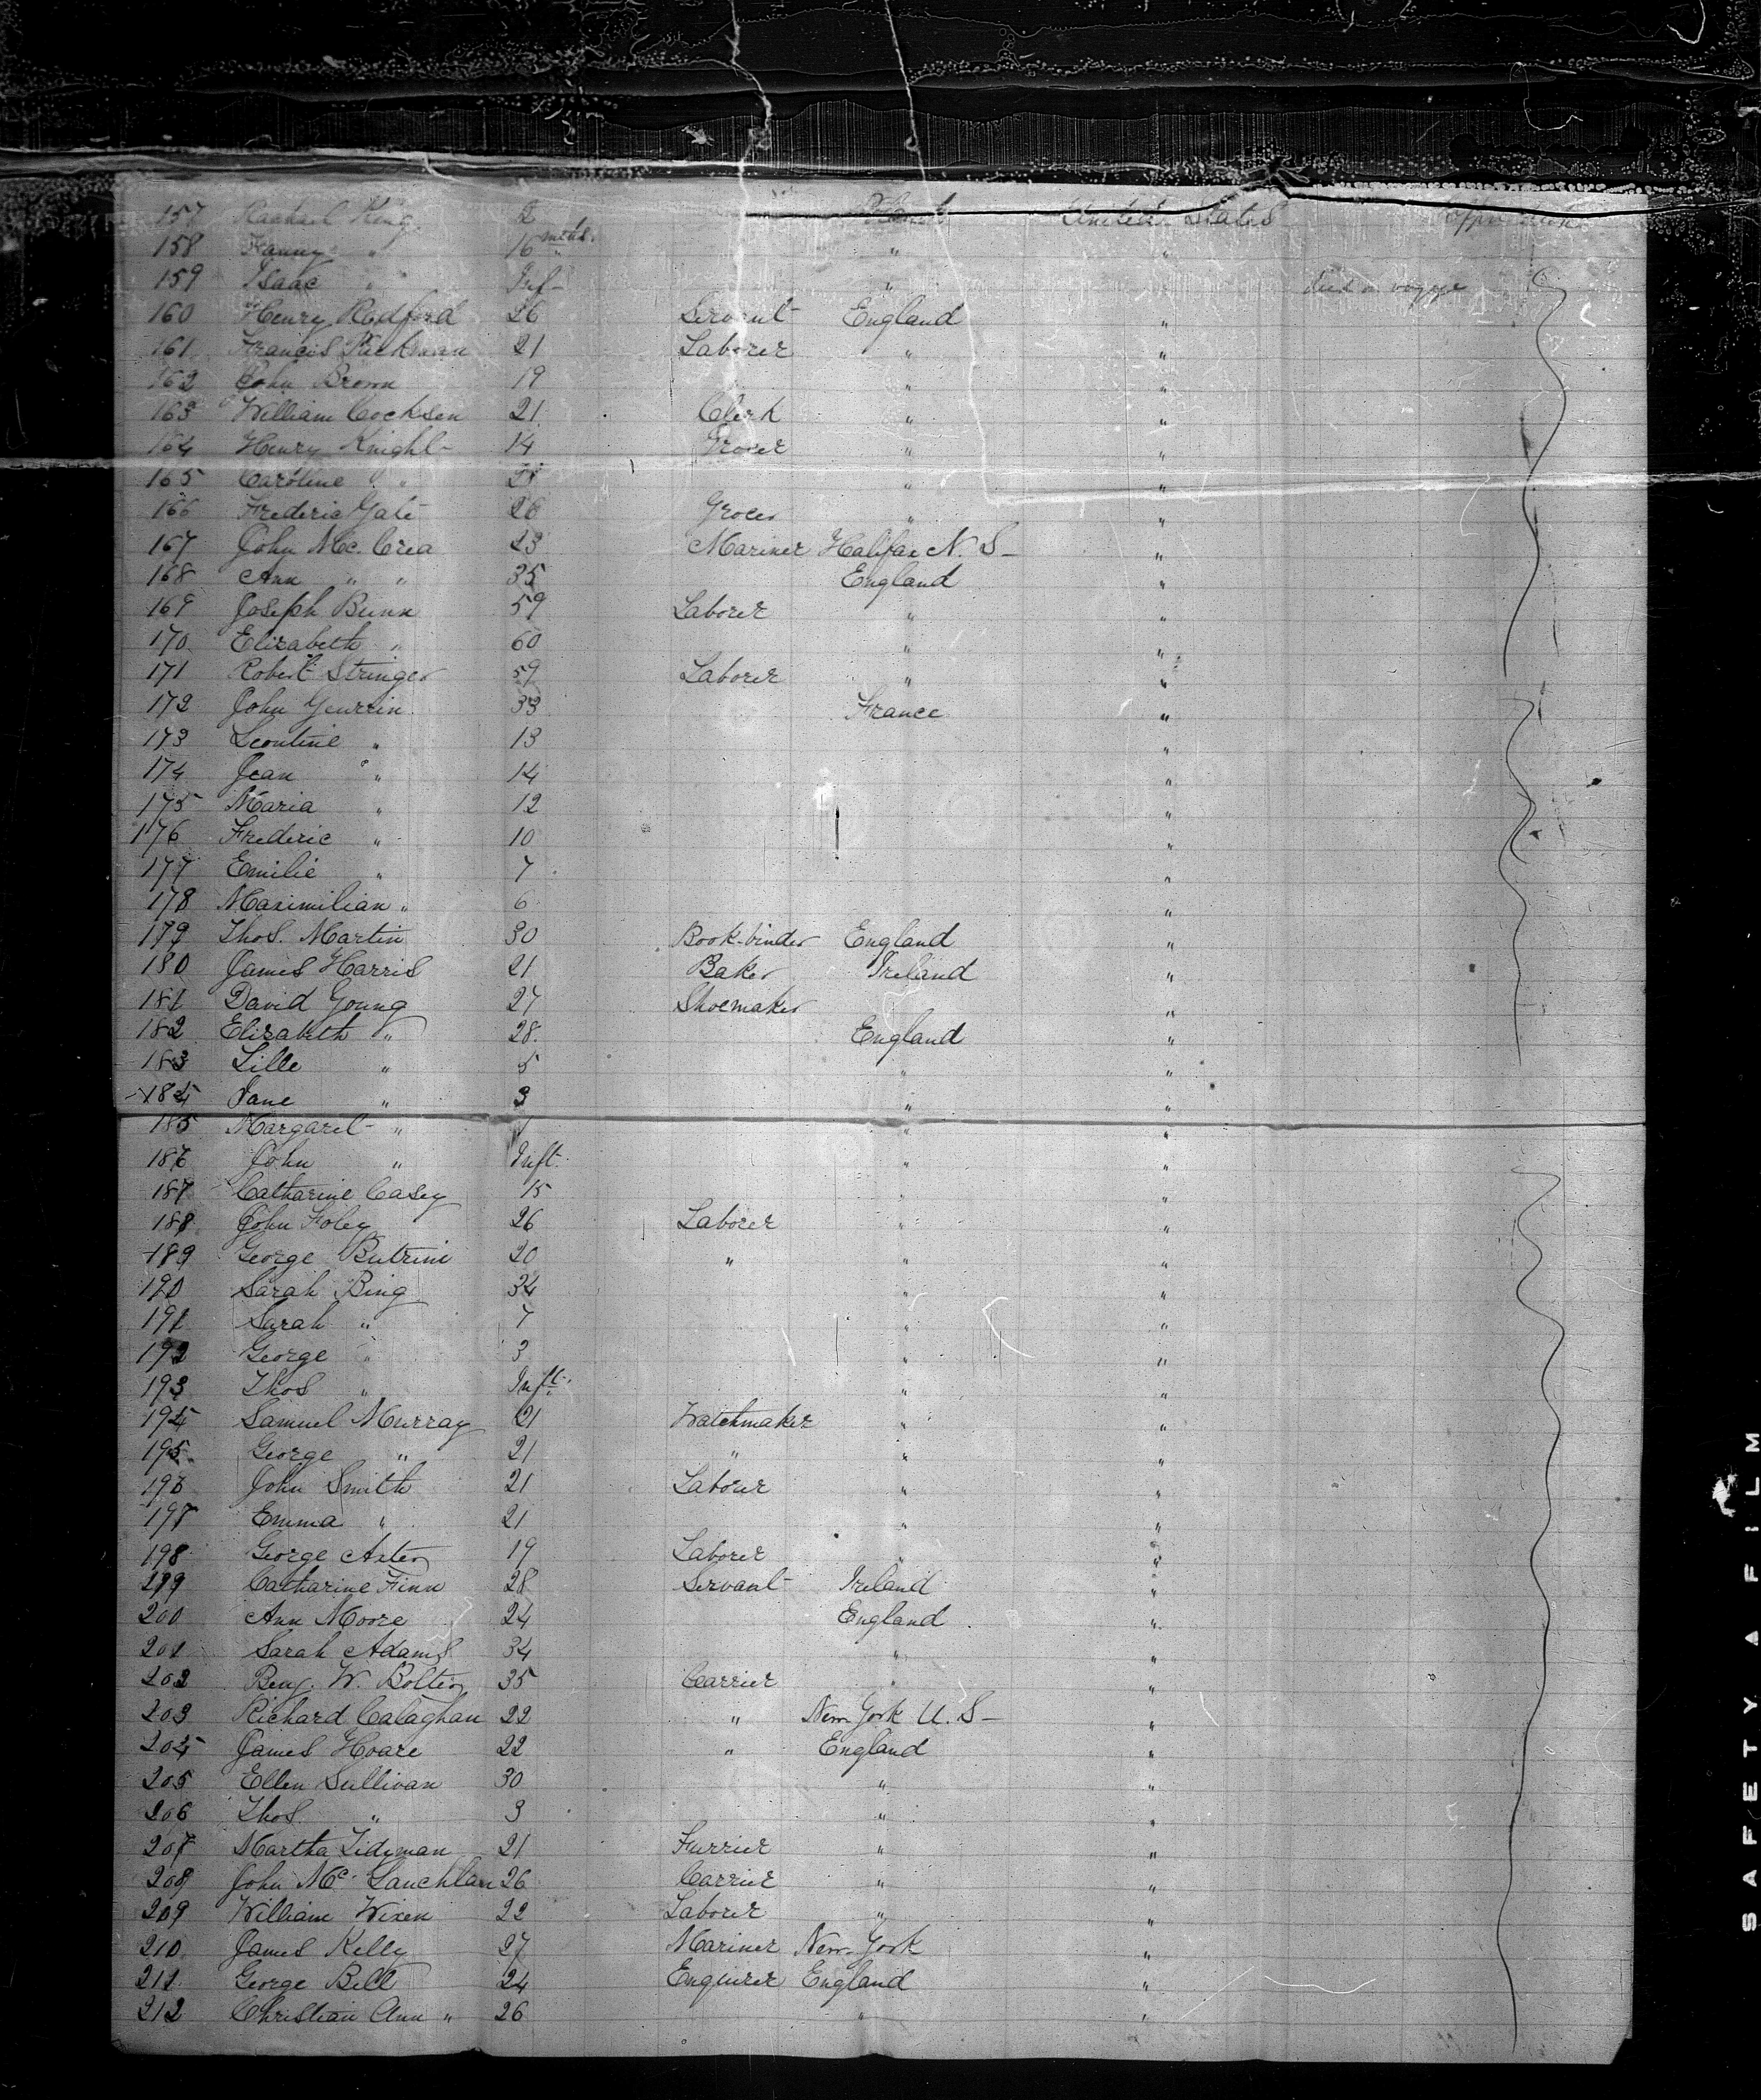 157 Rachael King 2 United States
158 Fanny " 16 mths. " "
159 Isaac " Inf- " died on voyage
160 Henry Redford 26 Servant England "
161 Francis Rickman 21 Laborer " "
162 John Brown 19 " "
163 William Cocksen 21 Clerk " "
164 Henry Knight 14 Grocer " "
165 Caroline " " "
166 Frederic Gate 26 Grocer " "
167 John Mc. Crea 23 Mariner Halifax N. S- "
168 Ann " " 35 England "
169 Joseph Bunn 59 Laborer " "
170 Elizabeth " 60 " "
171 Robert Stringer 59 Laborer " "
172 John Geurrin 33 France "
173 Leontine " 13 "
174 Jean " 14 "
175 Maria " 12 "
176 Frederic " 10 "
177 Emilie " 7 "
178 Maximilian " 6 "
179 Thos. Martin 30 Book-binder England "
180 James Harris 21 Baker Ireland "
181 David Young 27 Shoemaker "
182 Elizabeth " 28 England "
183 Lille " 5 " "
184 Jane " 3 " "
185 Margaret " 1 " "
186 John " Inft. " "
187 Catharine Casey 15 " "
188 John Foley 26 Laborer " "
189 George Butrini 20 " " "
190 Sarah Bing 34 " "
191 Sarah " 7 " "
192 George " 3 " "
193 Thos " Inft. " "
194 Samuel Murray 21 Watchmaker " "
195 George " 21 " " "
196 John Smith 21 Labour " "
197 Emma " 21 " "
198 George Axter 19 Laborer " "
199 Catharine Finn 28 Servant Ireland "
200 Ann Moore 24 England "
201 Sarah Adams 34 " "
202 Benj. W. Bolter 35 Carrier " "
203 Richard Calaghan 22 " New York U. S- "
204 James Hoare 22 " England "
205 Ellen Sullivan 30 " "
206 Thos. " 3 " "
207 Martha Tidyman 21 Furrier " "
208 John Mc. Lauchlan 26 Carrier " "
209 William Wixen 22 Laborer " "
210 James Kelly 27 Mariner New-York "
211 George Bell 24 Enquirer England "
212 Christian Ann " 26 " "
SAFETY A FILM